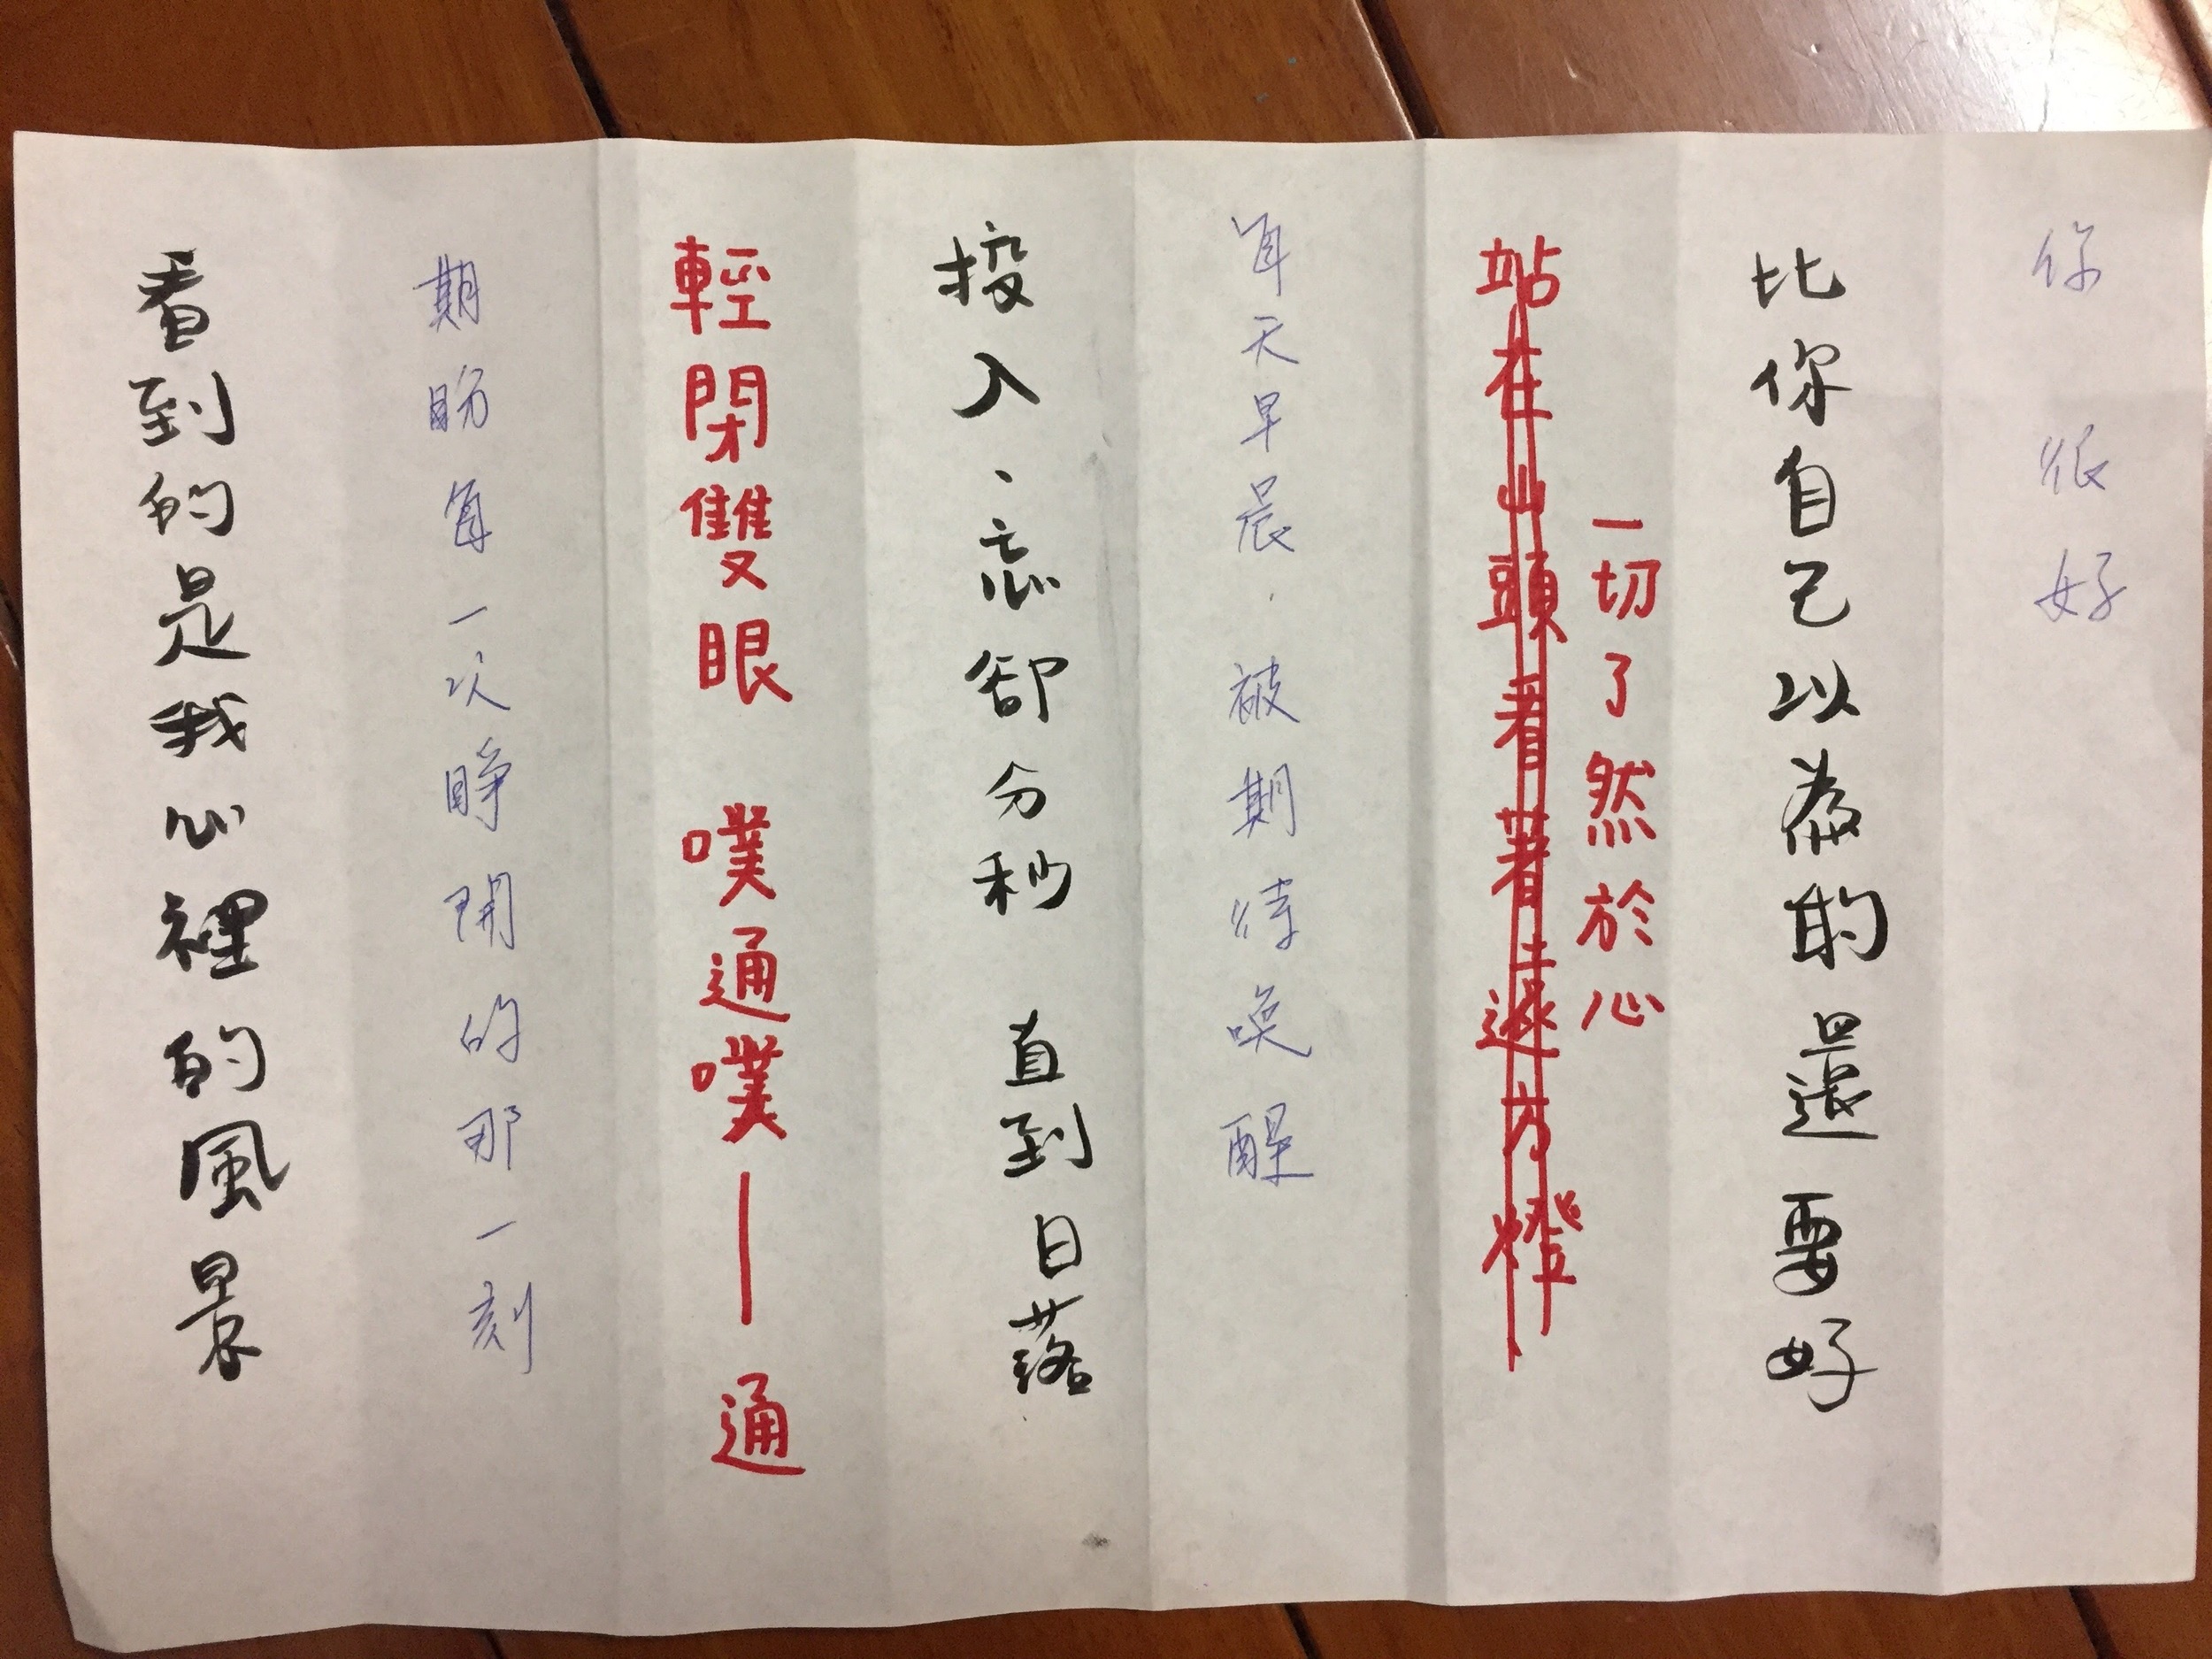 你 很 好
比你自己以為的還要好
一切了然於心
站在山頭看著遠方燈
每天早晨．被期待喚醒
投入、忘卻分秒 直到日落
輕閉雙眼 噗通噗—通
期盼每一次睜開的那一刻
看到的是我心裡的風景